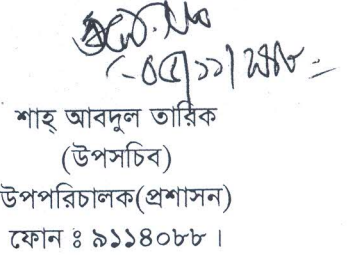 শাহ্ আবদুল তারিক
(উপসচিব)
উপপরিচালক(প্রশাসন)
ফোন ঃ ৯১১৪০৮৮ ।